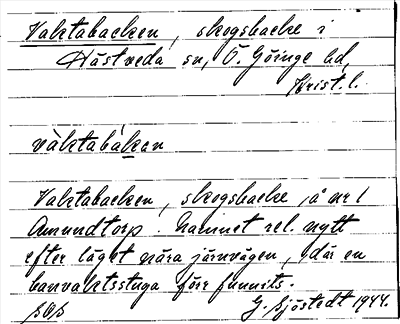 Vaktabacken, skogsbacke i
Hästveda sn, Ö. Göinge hd,
Krist. l.
vàktabàkan
Vaktabacken, skogsbacke, å nr 1
Amundtorp. Namnet rel. nytt
efter läget nära järnvägen, där en
banvaktsstuga förr funnits.
G. Sjöstedt 1944.